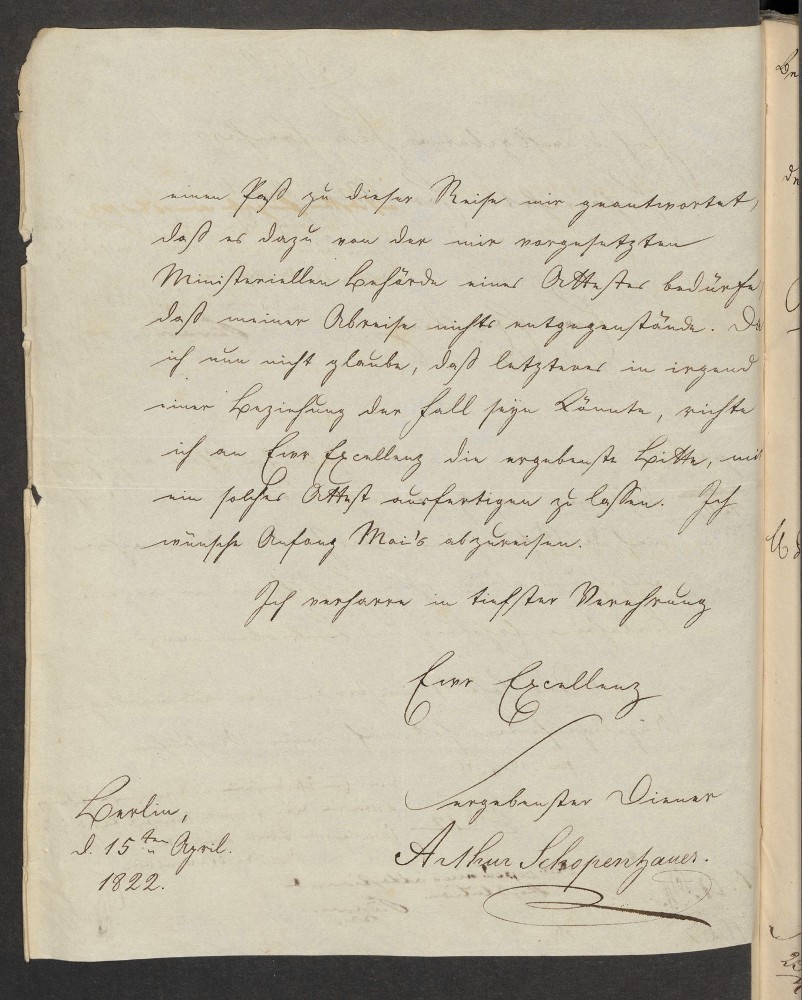 einen Paß zu dieser Reise mir geantwortet,
daß es dazu von der mir vorgesetzten
Ministeriellen Behörde eines Attestes bedürfe
daß meiner Abreise nichts entgegenstände. Da
ich nun nicht glaube, daß letzteres in irgend
einer Beziehung der Fall seyn könnte, richte
ich an Ewr Excellenz die ergebenste Bitte, mir
ein solches Attest ausfertigen zu lassen. Ich
wünsche Anfang Mai's abzureisen.
Ich verharre in tiefster Verehrung
Ewr Excellenz
ergebenster Diener
Arthur Schopenhauer.
Berlin,
d. 15ten April.
1822.